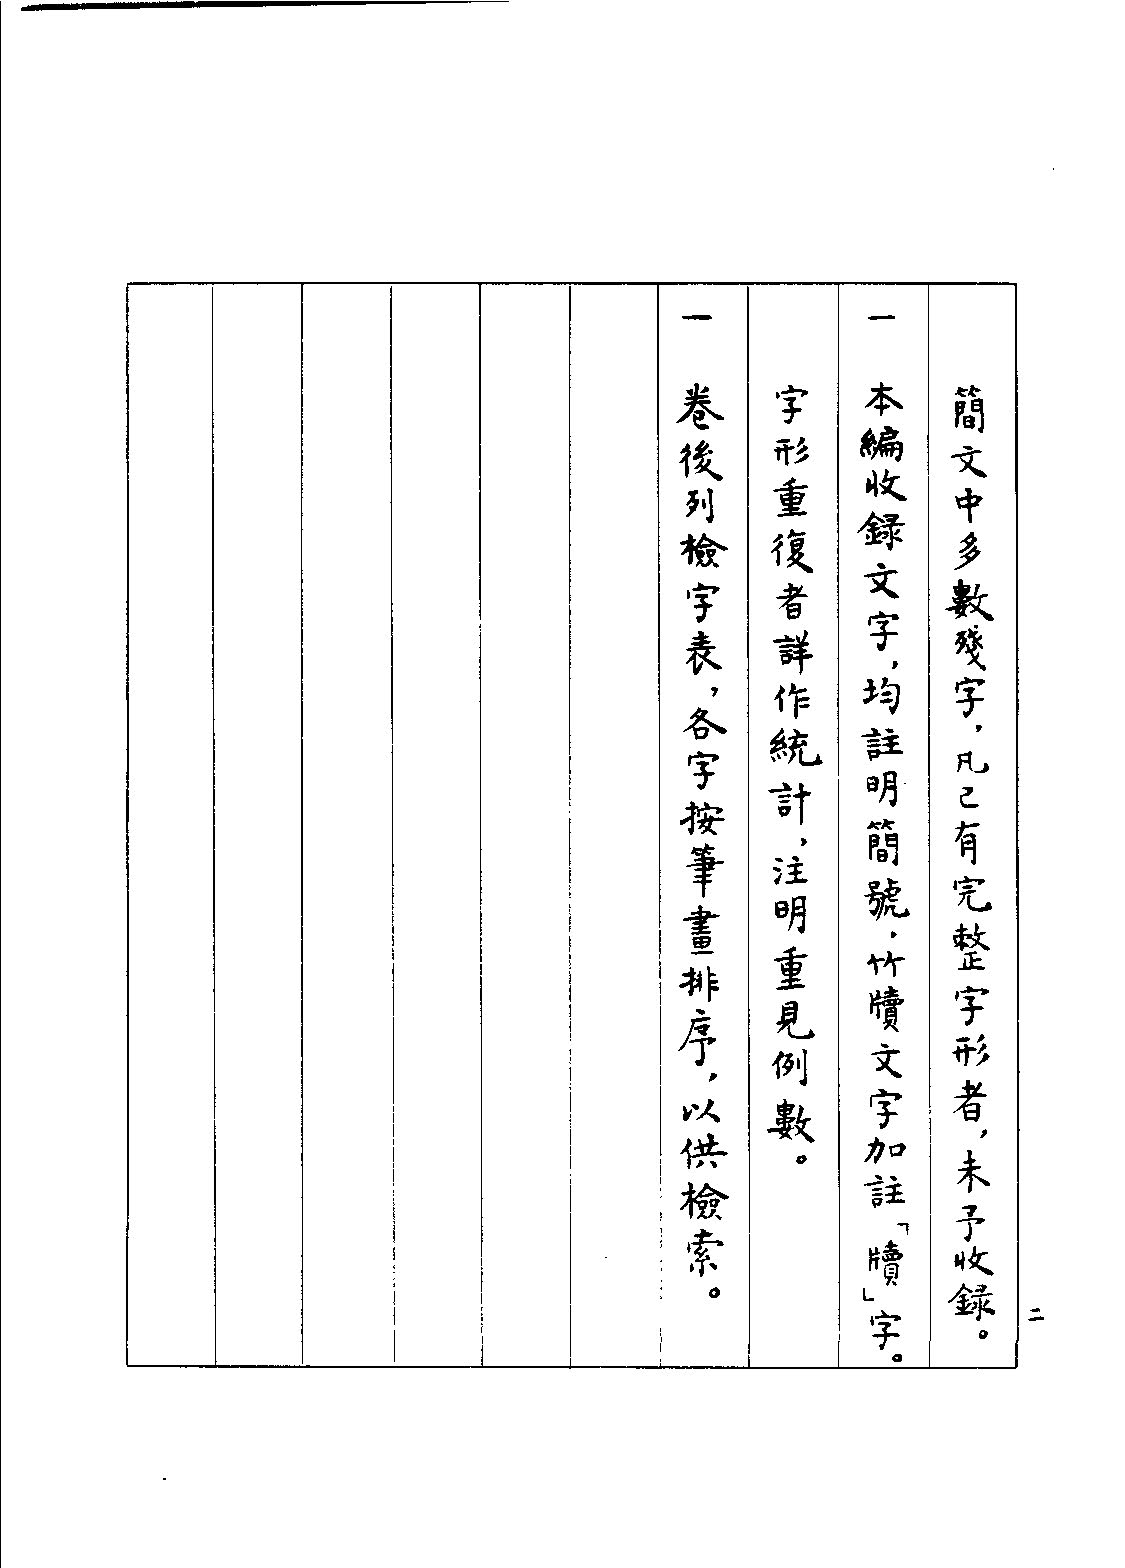 簡文中多數殘字，凡已有完整字形者，未予收錄。
一　本編收録文字，均註明簡號，竹牘文字加註「牘」字。
字形重復者詳作統計，注明重見例數。
一　卷後列檢字表，各字按筆畫排序，以供檢索。
二